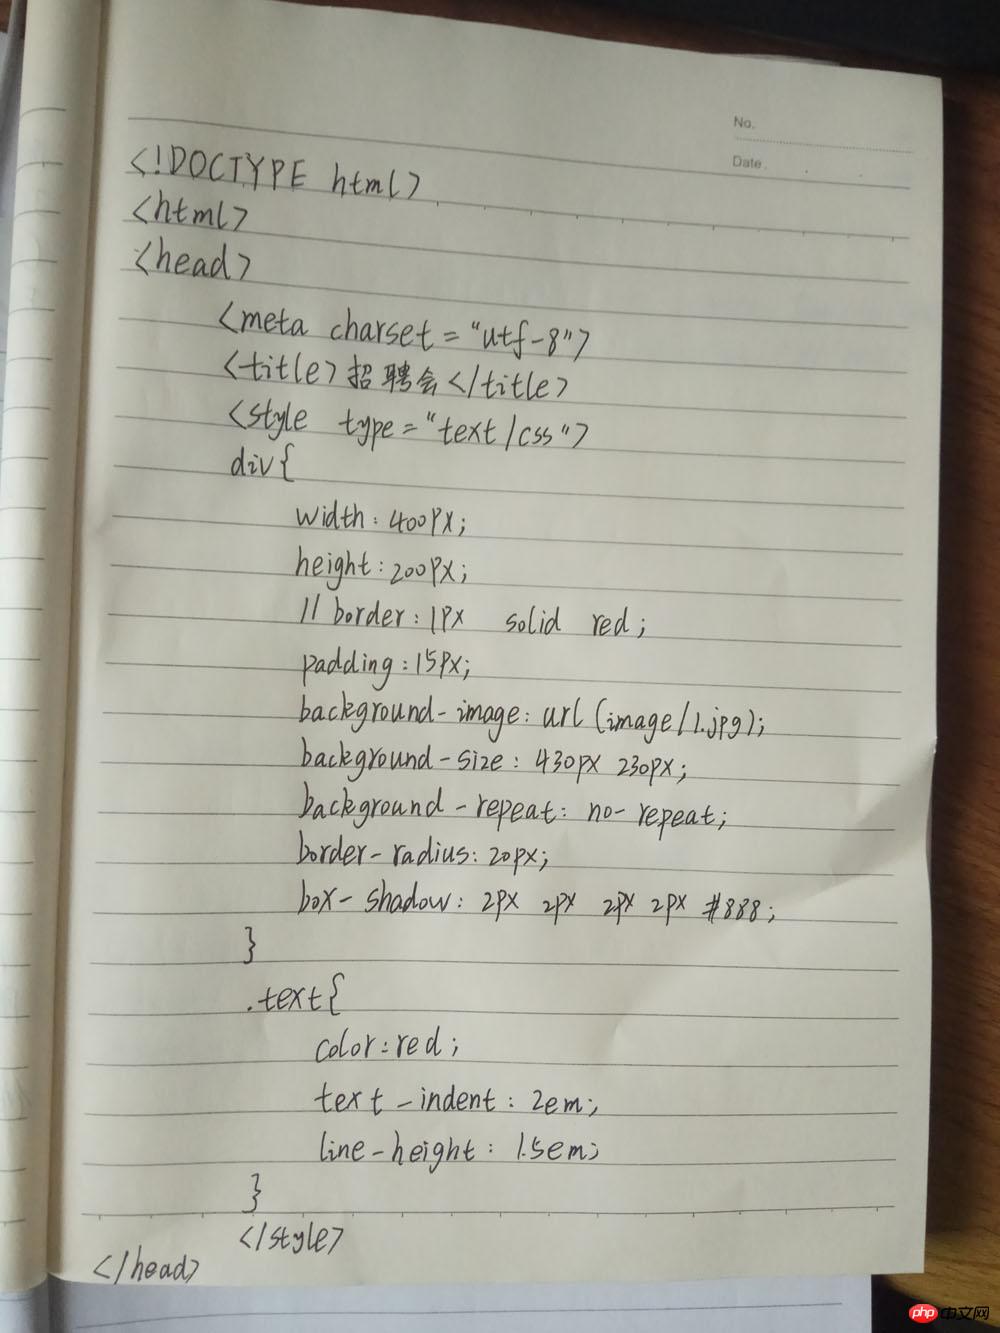 No.
Date.
<!DOCTYPE html>
<html>
<head>
<meta charset="utf-8">
<title>招聘会</title>
<style type="text/css">
div{
width:400px;
height:200px;
// border:1px solid red;
padding:15px;
background-image:url(image/1.jpg);
background-size:430px 230px;
background-repeat:no-repeat;
border-radius:20px;
box-shadow:2px 2px 2px 2px #888;
}
.text{
color:red;
text-indent:2em;
line-height:1.5em;
}
</style>
</head>
php 中文网